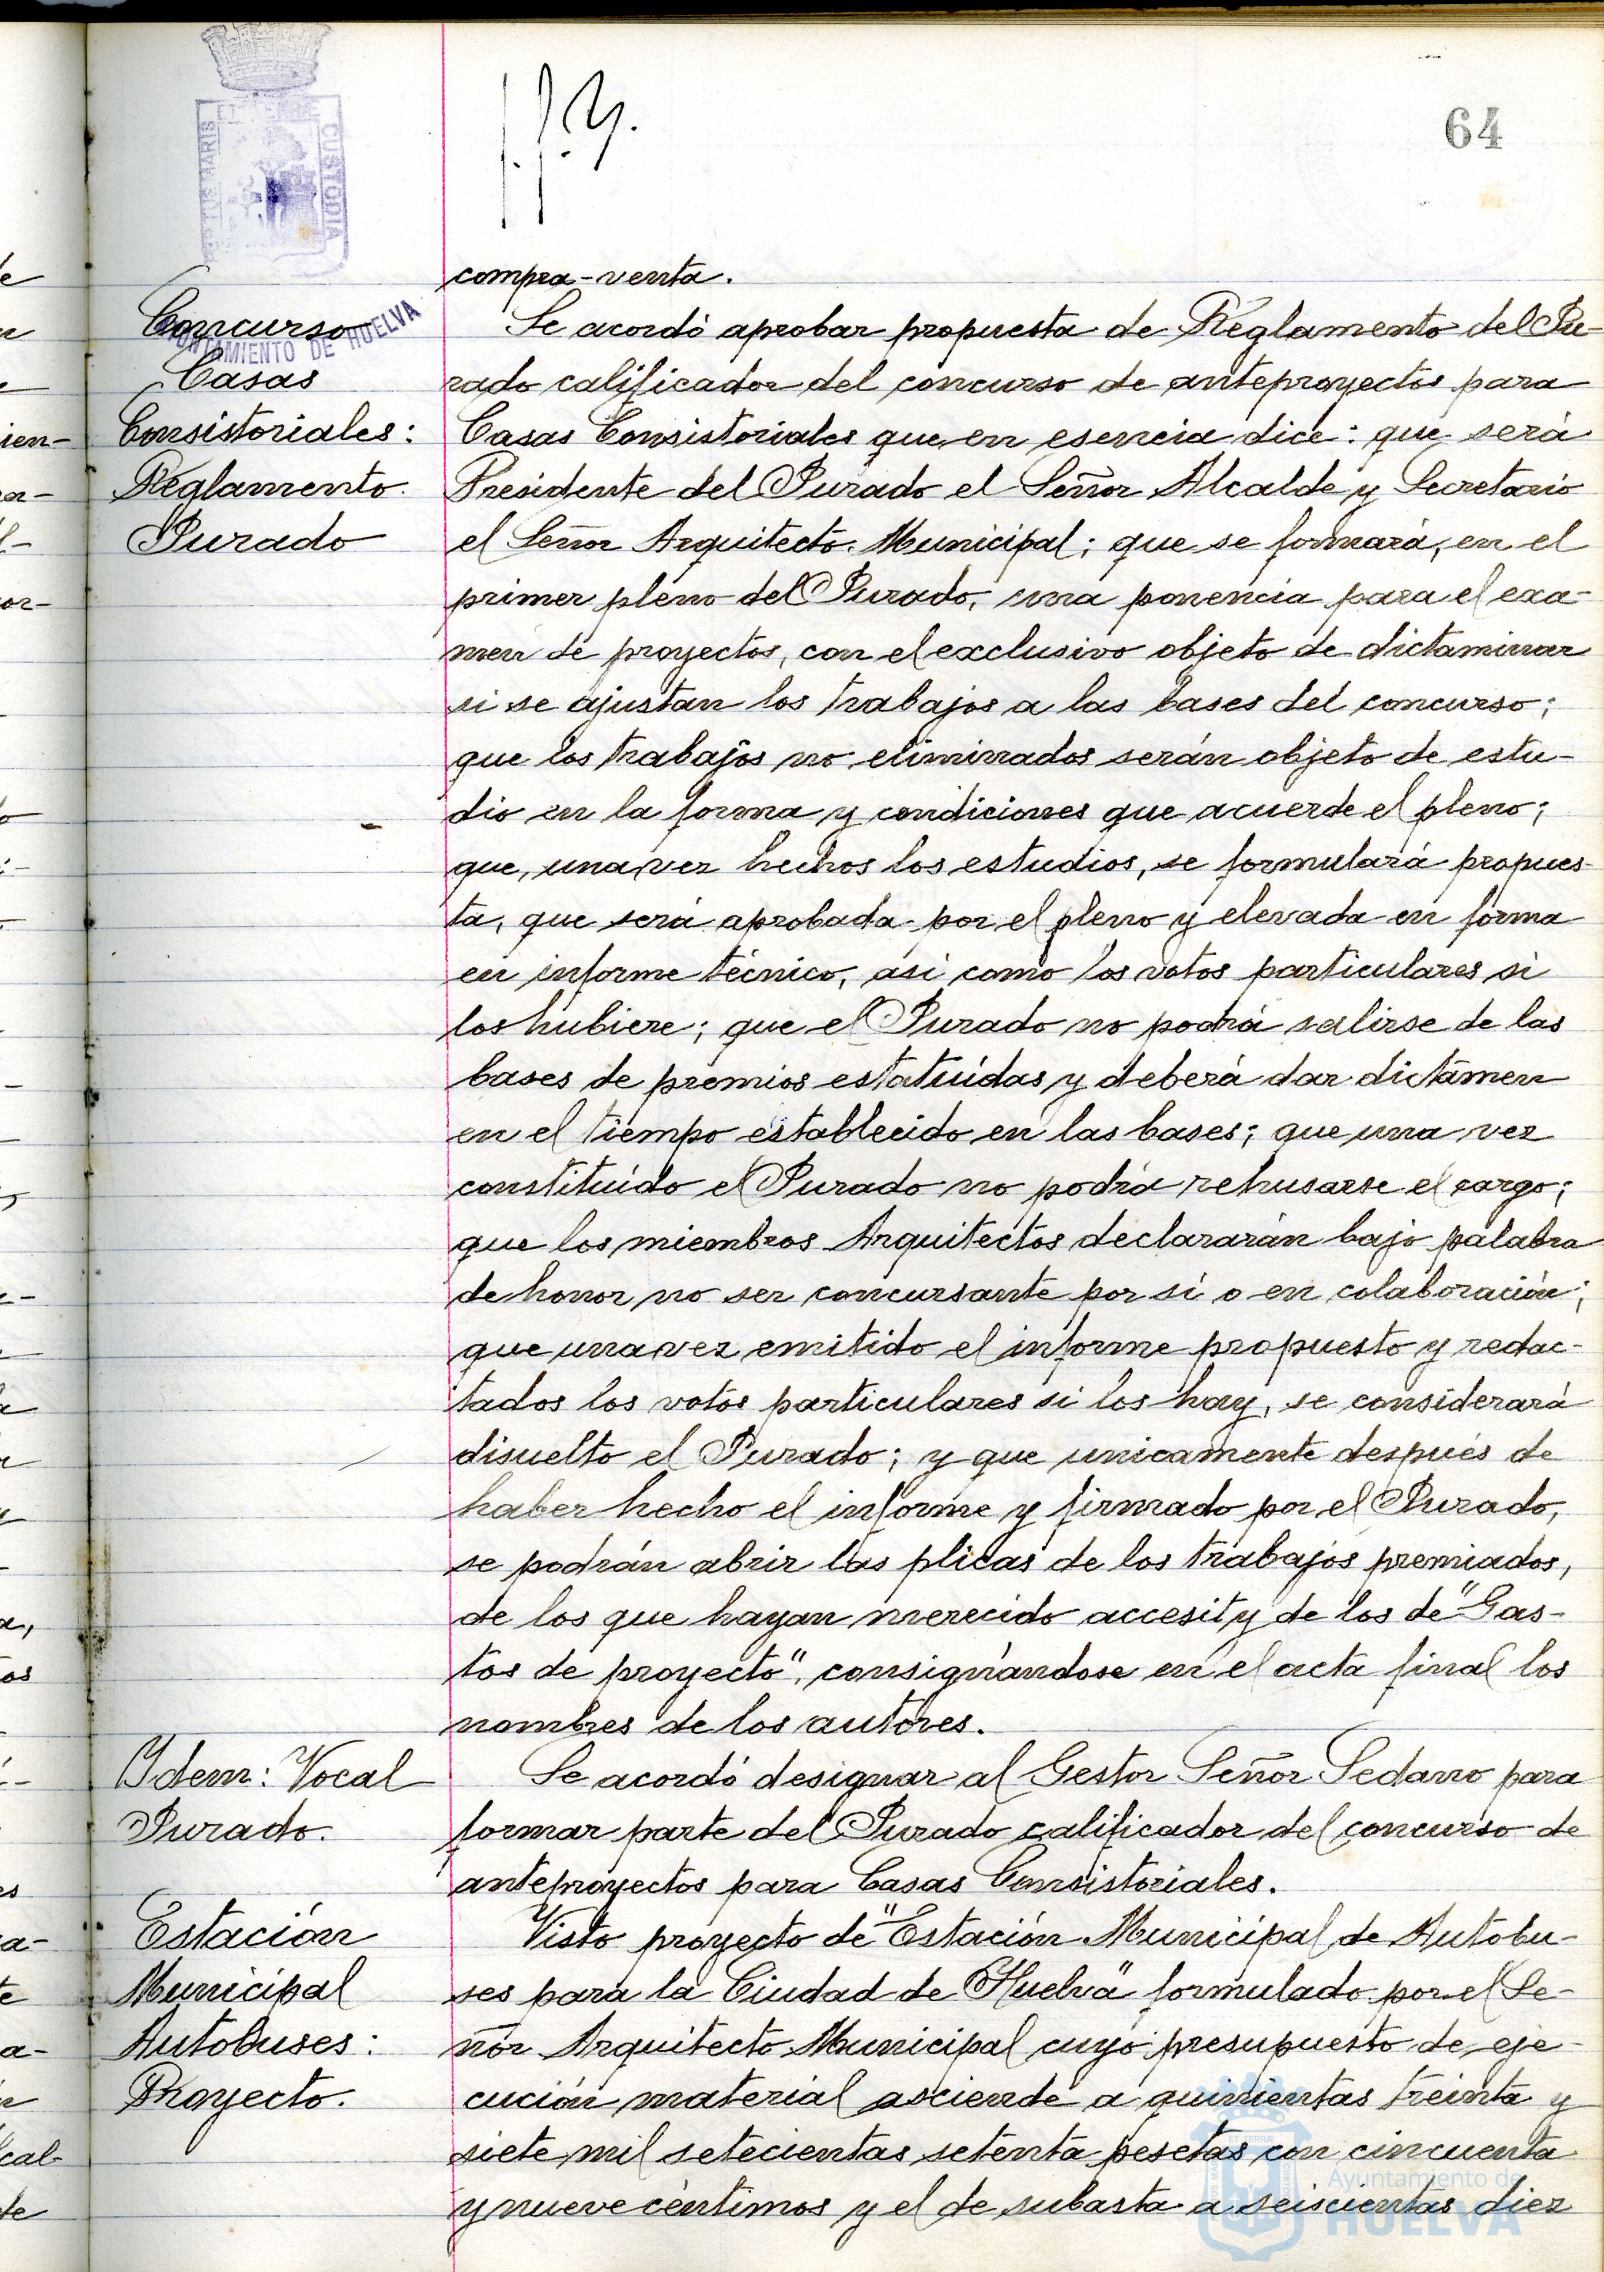 64
compra-venta.
Concurso
Casas
Consistoriales:
Reglamento.
Jurado
Se acordó aprobar propuesta de Reglamento del Ju-
rado calificador del concurso de anteproyectos para
Casas Consistoriales que en esencia dice: que será
Presidente del Jurado el Señor Alcalde y Secretario
el Señor Arquitecto Municipal; que se formará, en el
primer pleno del Jurado, una ponencia para el exa-
men de proyectos, con el exclusivo objeto de dictaminar
si se ajustan los trabajos a las bases del concurso;
que los trabajos no eliminados serán objeto de estu-
dio en la forma y condiciones que acuerde el pleno;
que, una vez hechos los estudios, se formulará propues-
ta, que será aprobada por el pleno y elevada en forma
en informe técnico, asi como los votos particulares si
los hubiere; que el Jurado no podrá salirse de las
bases de premios estatuídas y deberá dar dictámen
en el tiempo establecido en las bases; que una vez
constituído el Jurado no podrá rehusarse el cargo;
que los miembros Arquitectos declararán bajo palabra
de honor no ser concursante por sí o en colaboración;
que una vez emitido el informe propuesto y redac-
tados los votos particulares si los hay, se considerará
disuelto el Jurado; y que unicamente después de
haber hecho el informe y firmado por el Jurado,
se podrán abrir las plicas de los trabajos premiados,
de los que hayan merecido accesit y de los de "Gas-
tos de proyecto", consignándose en el acta final los
nombres de los autores.
Idem: Vocal
Jurado.
Se acordó designar al Gestor Señor Sedano para
formar parte del Jurado calificador del concurso de
anteproyectos para Casas Consistoriales.
Estación
Municipal
Autobuses:
Proyecto.
Visto proyecto de "Estación Municipal de Autobu-
ses para la Ciudad de Huelva" formulado por el Se-
ñor Arquitecto Municipal cuyo presupuesto de eje-
cución material asciende a quinientas treinta y
siete mil setecientas setenta pesetas con cincuenta
y nueve céntimos y el de subasta a seiscientas diez
AYUNTAMIENTO DE HUELVA
CUSTODIA
Ayuntamiento de
HUELVA